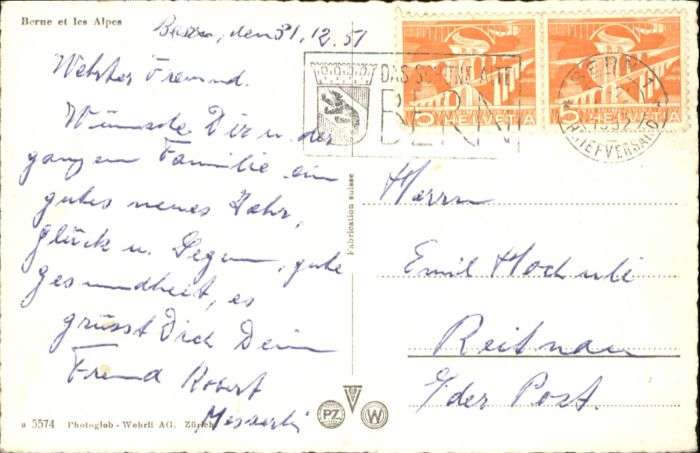 Berne et les Alpes
Bern, den 31.12.51
Werter Freund.
Wünsche Dir u. der
ganzen Familie ein
gutes neues Jahr,
Glück u. Segen, gute
gesundheit, es
grüsst Dich Dein
Freund Robert
Messerli
a 5574 Photoglob-Wehrli AG. Zürich
Fabrication suisse
PZ W
DAS SCHÖNE ALTE
BERN
10 HELVETIA 10 HELVETIA
BERN
BRIEFVERSAND
Herrn
Emil Hochuli
Reitnau
b/der Post.